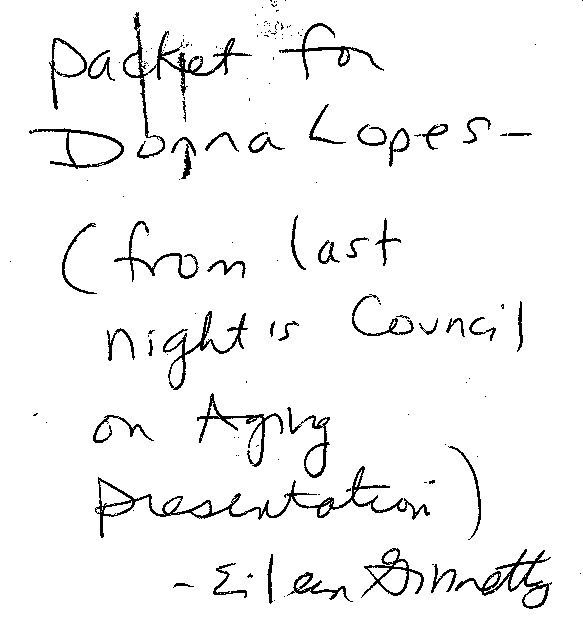 packet for
Donna Lopes -
(from last
night's Council
on Aging
presentation)
- Eileen Ginnetty